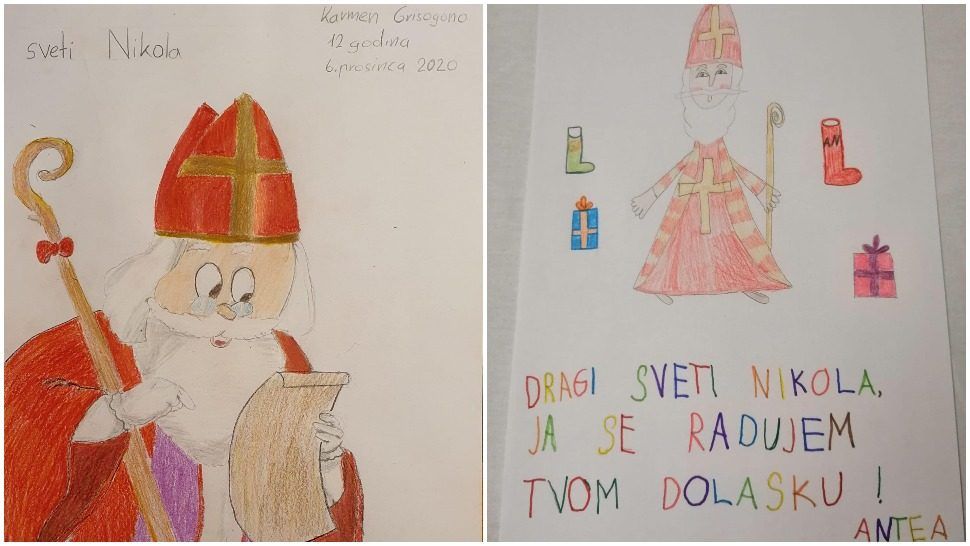 sveti Nikola
Karmen Grisogono
12 godina
6. prosinca 2020
AM
DRAGI SVETI NIKOLA,
JA SE RADUJEM
TVOM DOLASKU !
ANTEA